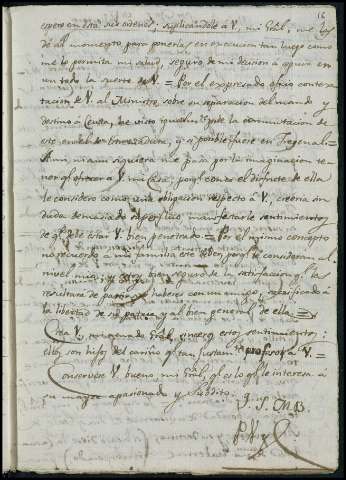 16
espero en esta sus ordenes, suplicándole á V., mi Gral, me las
dé al momento para ponerlas en execucion tan luego como
me lo permita mi salud, seguro de mi decision á seguir en
un todo la suerte de V. = Por el expresado oficio contex-
tacion de V. al Ministro sobre su separacion del mando y
destino á Ceuta, he visto igualmte. la conmutacion de
este en el de y si posible fuese en Fregenal =
A mi, ni aun siquiera me pasa por la imaginacion te-
ner q.e ofrecer á V. mi Casa, porq.e como el disfrute de ella
le considero como una obligacion respecto á V., creeria sin
duda demasiado superfluo manifestarle sentimientos
de q.e debe estar V. bien penetrado = Por el mismo concepto
no recuerdo a mi familia este deber, porq.e le consideran al
nivel mio, y estoy bien seguro de la satisfaccion q.e les
resultará de partir sus haberes con un amigo sacrificado á
la libertad de su patria y al bien general de ella =
Crea V., mi amado Gral, sinceros estos sentimientos:
ellos son hijos del cariño q.e tan justamte. profesa á V. =
Conservese V. bueno, mi Gral, q.e es lo q.e le interesa á
su mayor apasionado y subdito.
J. J. M. B.